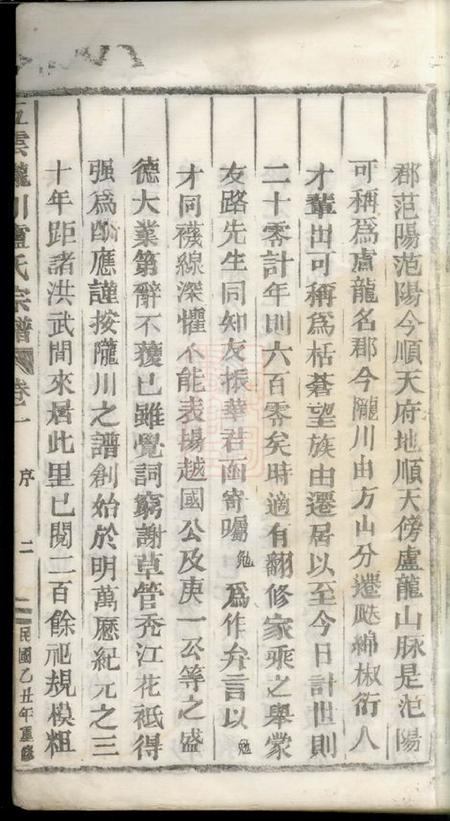 郡范陽范陽今順天府地順天傍盧龍山脉是范陽
可稱爲盧龍名郡今隴川由方山分遷瓞綿椒衍人
才輩出可稱爲栝蒼望族由遷居以至今日計世則
二十零計年則六百零矣時適有翻修家乘之舉蒙
友路先生同知友振華君函寄囑勉爲作弁言以勉
才同襪線深懼不能表揚越國公及庚一公等之盛
德大業第辭不獲已雖覺詞窮謝草管秃江花祗得
强爲酧應謹按隴川之譜創始於明萬厯紀元之三
十年距諸洪武間來居此里已閱二百餘祀規模粗
五雲隴川盧氏宗譜 卷一 序 二 民國乙丑年重修